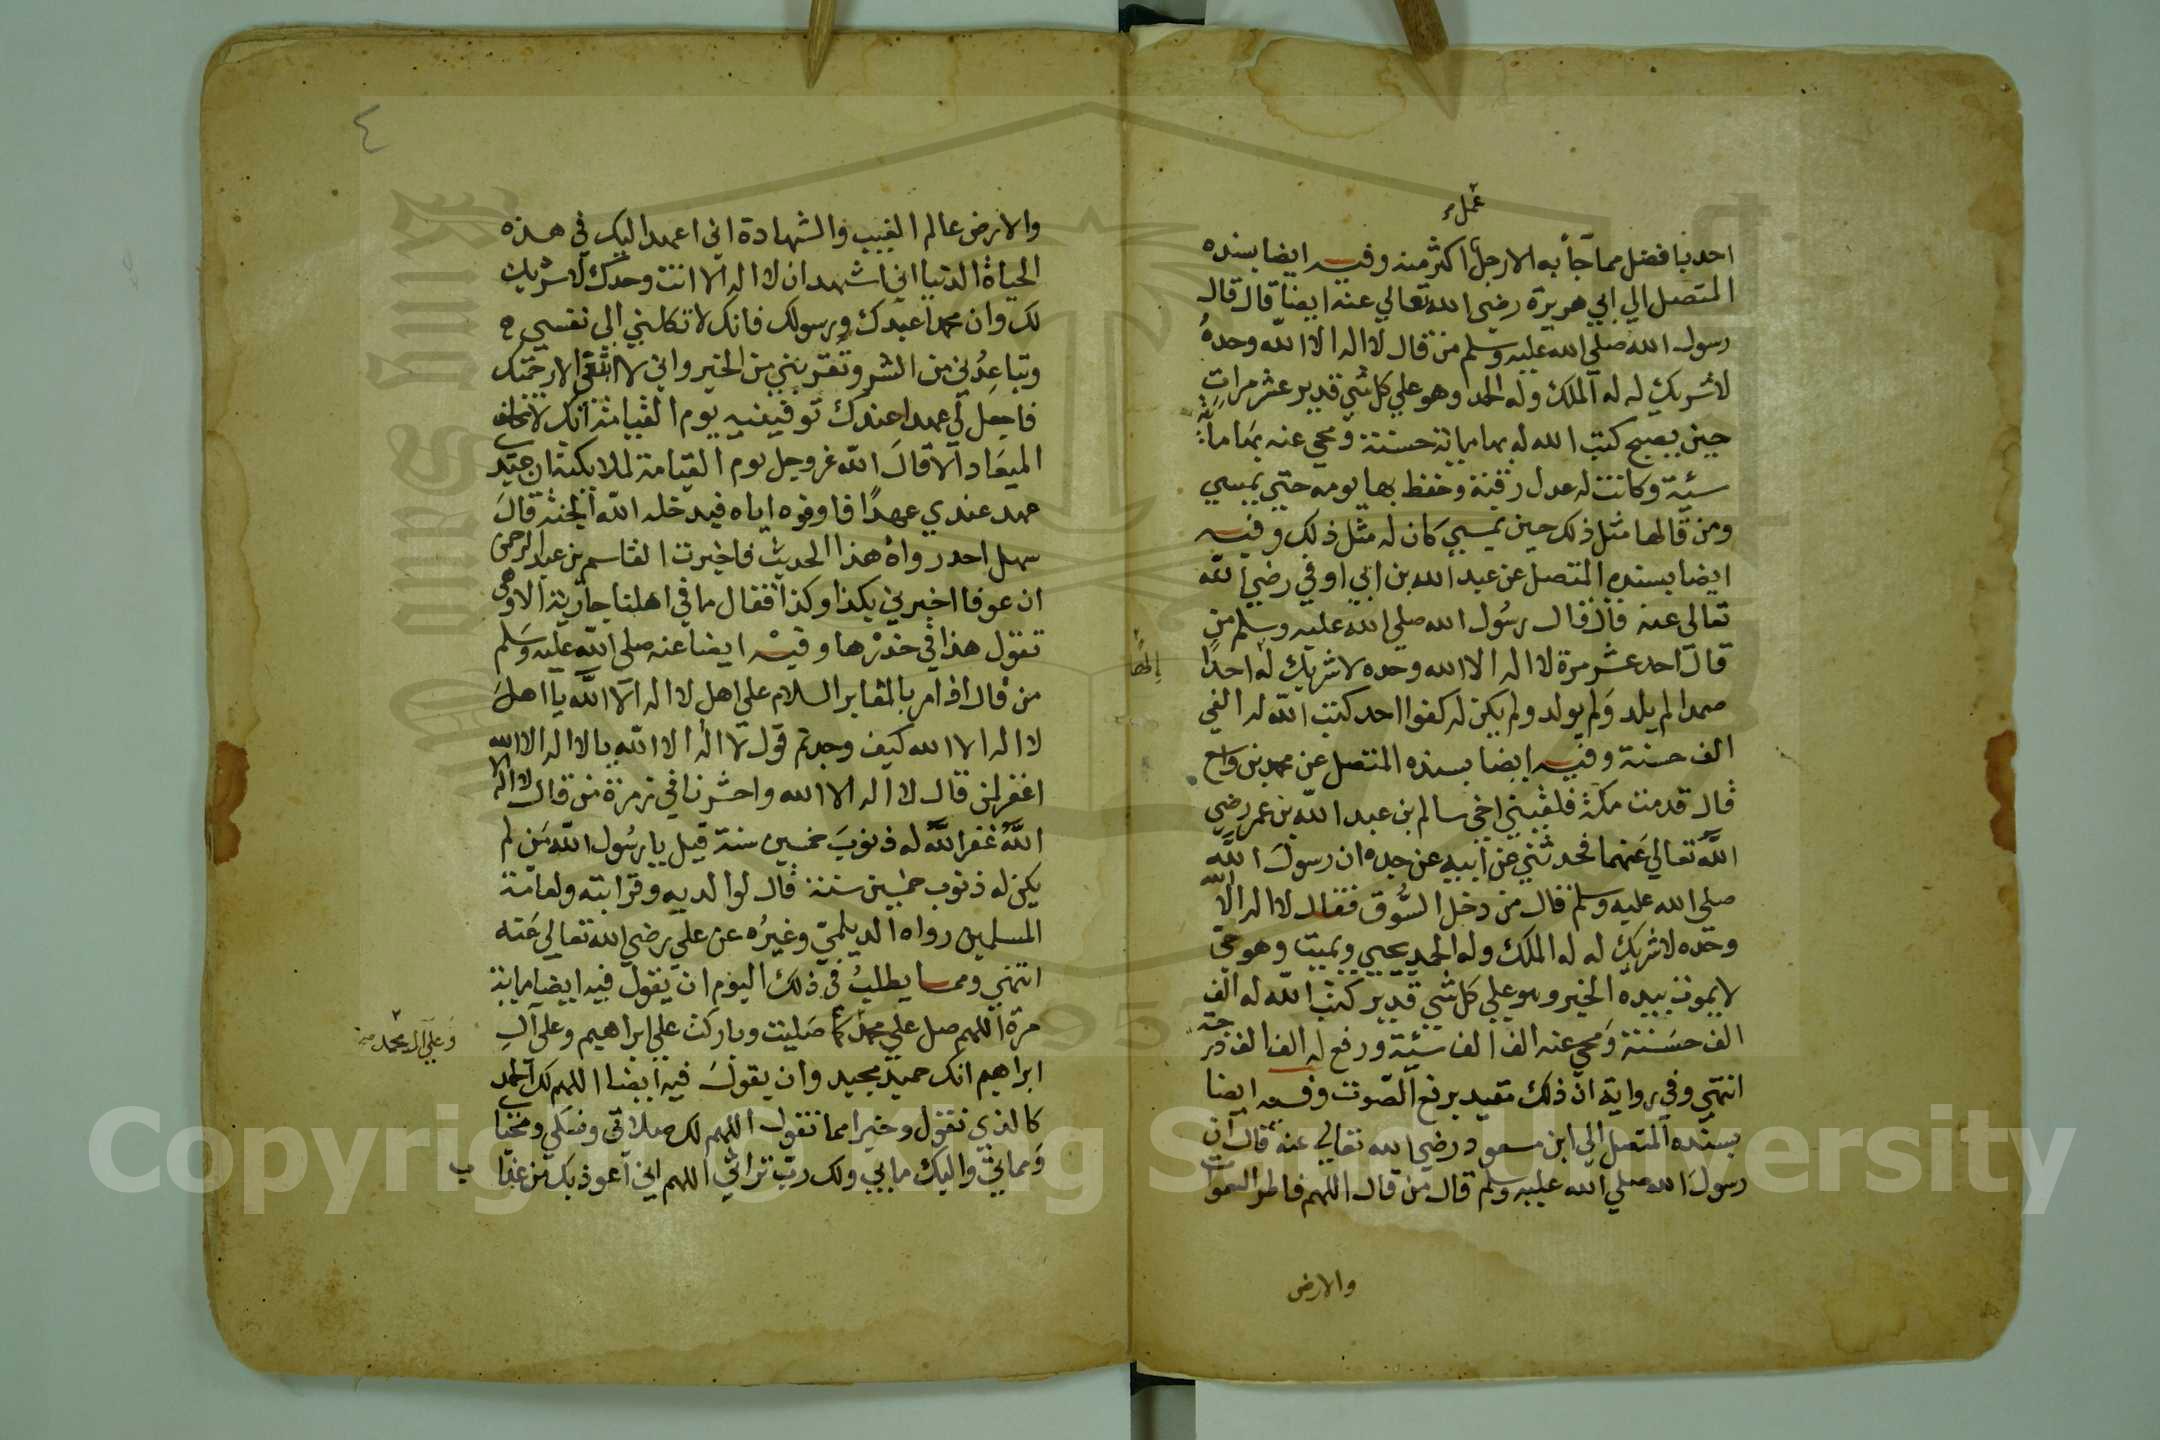 عمل
احد بافضل مما جاء به الا رجل اكثر منه وفيه ايضا بسنده
المتصل الي ابي هريرة رضي الله تعالي عنه ايضا قال قال
رسول الله صلي الله عليه وسلم من قال لا اله الا الله وحده
لا شريك له له الملك وله الحمد وهو علي كل شي قدير عشر مرات
حين يصبح كتب الله له بها ماية حسنة ومحي عنه بها ماية
سيئة وكانت له عدل رقبة وحفظ بها يومه حتي يمسي
ومن قالها مثل ذلك حين يمسي كان له مثل ذلك وفيه
ايضا بسنده المتصل عن عبد الله بن ابي اوفي رضي الله
تعالي عنه قال قال رسول الله صلي الله عليه وسلم من
قال احد عشر مرة لا اله الا الله وحده لا شريك له احدا
الها
صمدا لم يلد ولم يولد ولم يكن له كفوا احد كتب الله له الفي
الف حسنة وفيه ايضا بسنده المتصل عن محمد بن واسع
قال قدمت مكة فلقيني اخي سالم بن عبد الله بن عمر رضي
الله تعالي عنهما فحدثني عن ابيه عن جده ان رسول الله
صلي الله عليه وسلم قال من دخل السوق فقال لا اله الا الله
وحده لا شريك له له الملك وله الحمد يحيي ويميت وهو حي
لا يموت بيده الخير وهو علي كل شي قدير كتب الله له الف
الف حسنة ومحي عنه الف الف سيئة ورفع له الف الف درجة
انتهي وفي رواية ان ذلك مقيد برفع الصوت وفيه ايضا
بسنده المتصل الي ابن مسعود رضي الله تعالي عنه قال ان
رسول الله صلي الله عليه وسلم قال من قال اللهم فاطر السموات
والارض
٤
والارض عالم الغيب والشهادة اني اعهد اليك في هذه
الحياة الدنيا اني اشهد ان لا اله الا انت وحدك لا شريك
لك وان محمدا عبدك ورسولك فانك لا تكلني الي نفسي
وتباعدني من الشر وتقربني من الخير واني لا اثق الا برحمتك
فاجعل لي عهدا عندك توفينيه يوم القيامة انك لا تخلف
الميعاد الا قال الله عز وجل يوم القيامة لملايكته ان عبدي
عهد عندي عهدا فاوفوه اياه فيدخله الله الجنة قال
سهل احد رواة هذا الحديث فاخبرت القاسم بن عبد الرحمن
ان عوفا اخبرني بكذا وكذا فقال ما في اهلنا جارية الا وهي
تقول هذا في خدرها وفيه ايضا عنه صلي الله عليه وسلم
من قال اذا مر بالمقابر السلام علي اهل لا اله الا الله يا اهل
لا اله الا الله كيف وجدتم قول لا اله الا الله يا لا اله الا الله
اغفر لمن قال لا اله الا الله واحشرنا في زمرة من قال لا اله الا
الله غفر الله له ذنوب خمسين سنة قيل يا رسول الله من لم
يكن له ذنوب خمسين سنة قال لوالديه وقرابته ولعامة
المسلمين رواه الديلمي وغيره عن علي رضي الله تعالي عنه
انتهي ومما يطلب في ذلك اليوم ان يقول فيه ايضا ماية
مرة اللهم صل علي محمد كما صليت وباركت علي ابراهيم وعلي ال
وعلي آل محمد
ابراهيم انك حميد مجيد وان يقول فيه ايضا اللهم لك الحمد
كالذي نقول وخيرا مما نقول اللهم لك صلاتي ونسكي ومحياي
ومماتي واليك مآبي ولك رب تراثي اللهم اني اعوذ بك من عذاب
Copyright © King Saud University